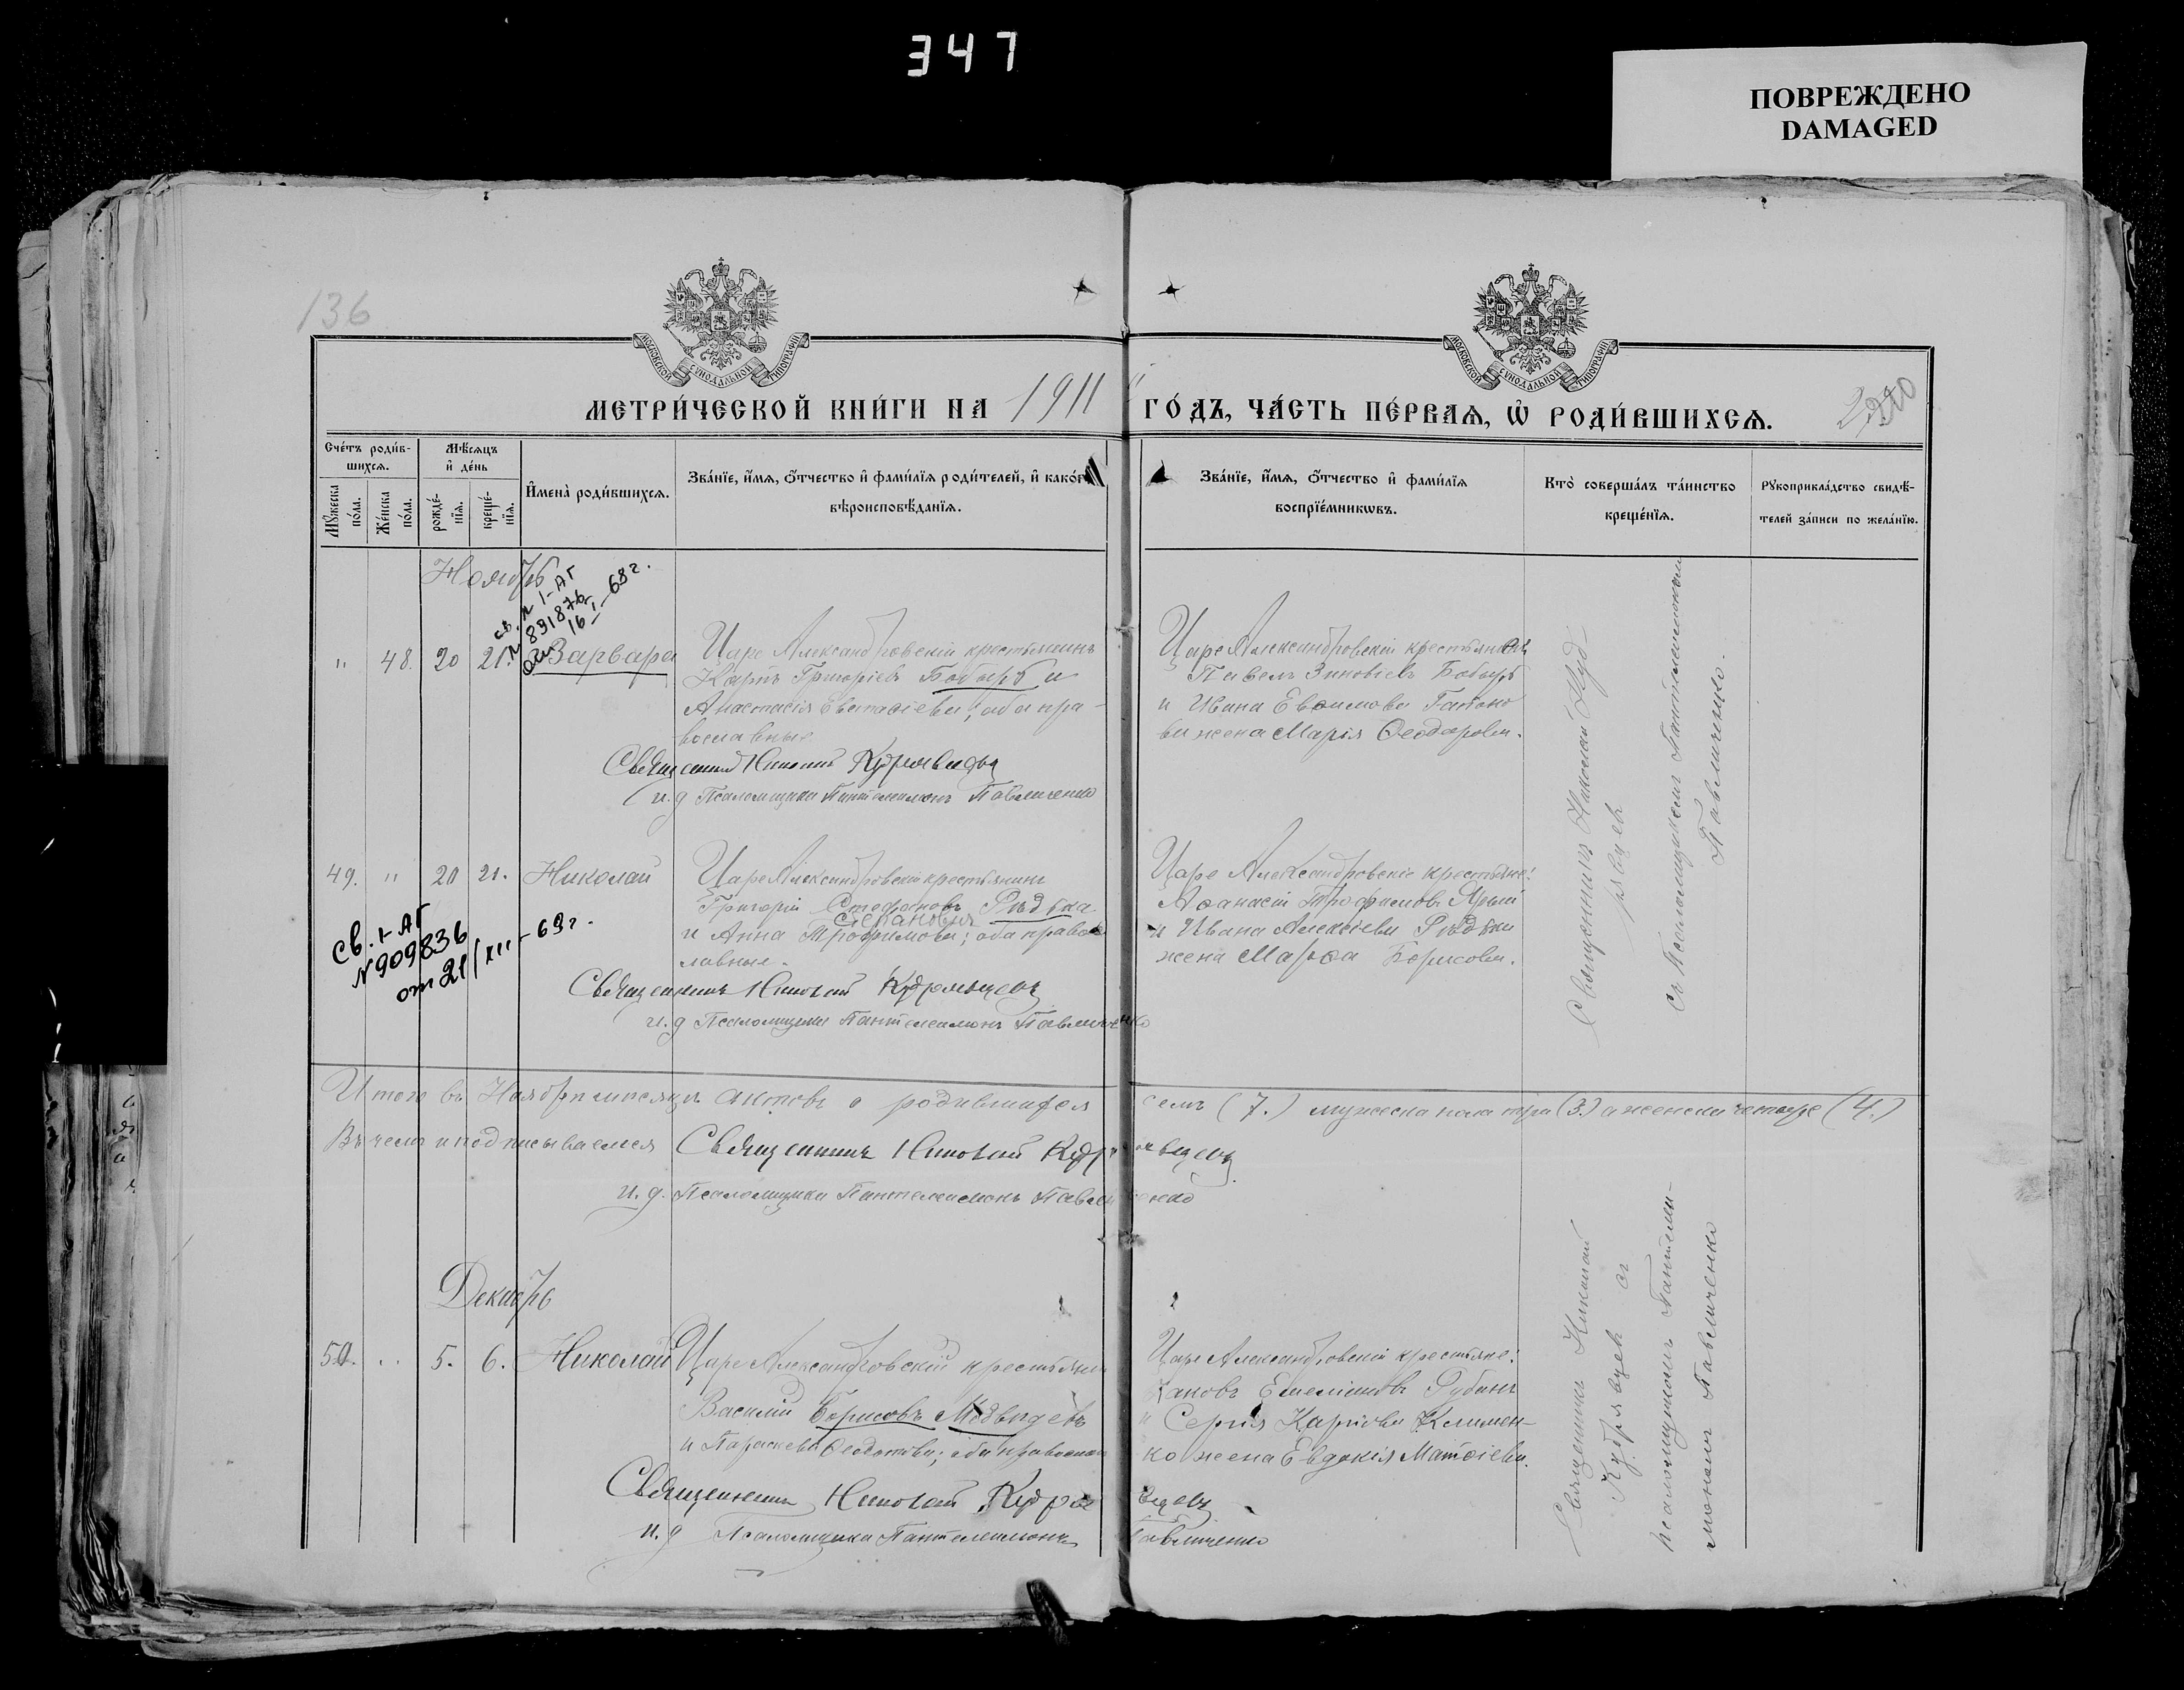 347
ПОВРЕЖДЕНО
DAMAGED
136
МОСКОВСКОЙ СѴНОДАЛЬНОЙ ТИПОГРАФІИ
МОСКОВСКОЙ СѴНОДАЛЬНОЙ ТИПОГРАФІИ
МЕТРИ́ЧЕСКОЙ КНИ́ГИ НА 1911 ГО́ДЪ, ЧА́СТЬ ПЕ́РВАѦ, Ѡ҆ РОДИ́ВШИХСѦ.
Сче́тъ роди́в-
шихсѧ.
Мꙋ́жеска по́ла.
Же́нска по́ла.
Мѣ́сѧцъ
и҆ де́нь
рожде́-
нїѧ.
креще́-
нїѧ.
И҆мена̀ роди́вшихсѧ.
Зва́нїе, и҆́мѧ, ѻ҆́тчество и҆ фами́лїѧ роди́телей, и҆ како́гѡ
вѣроисповѣ́данїѧ.
Зва́нїе, и҆́мѧ, ѻ҆́тчество и҆ фами́лїѧ
воспрїе́мникѡвъ.
Кто̀ соверша́лъ та́инство
креще́нїѧ.
Рꙋкоприкла́дство свидѣ́-
телей за́писи по жела́нїю.
Ноябрь
св. № 1-АГ
№ 831876
от 16/I-69г.
" 48. 20 21. Варвара
Царе Александровскій крестьянинъ
Карпъ Григоріевъ Бобырь и
Анастасія Евстаѳіева; оба пра-
вославные
Священникъ Николай Кудрявцевъ
и. д Псаломщика Пантелеимонъ Павличенко
Царе Александровскіе крестьяне
Павелъ Зиновіевъ Бобырь
и Ивана Евѳимова Гапоно
ва жена Марія Ѳеодорова.
Священникъ Николай Куд-
рявцев
съ Псаломщикомъ Пантелеимоном
Павличенко.
49. " 20 21. Николай
св. 1-АГ
№ 909836
от 21/XII-69г.
Царе Александровскій крестьянинъ
Григорій Стефановъ Рѣдька
Степановна
и Анна Трофимова; оба правос
лавные.
Священникъ Николай Кудрявцевъ
и. д Псаломщика Пантелеимонъ Павличенко
Царе Александровскіе крестьяне:
Аѳанасій Трофимовъ Ярый
и Ивана Алексіева Рѣдьки
жена Марѳа Борисова.
Итого въ Ноябрѣ мѣсяцѣ актовъ о родившихся семь (7.) мужеска пола три (3.) а женска четыре (4.)
Въ чемъ и подписываемся Священникъ Николай Кудрявцевъ
и. д. Псаломщика Пантелеимонъ Павличенко
Декабрь
50. " 5. 6. Николай
Царе Александровскій крестьянинъ
Василій Борисовъ Медвѣдевъ
и Параскева Ѳеодотова; оба православн
Священникъ Николай Кудрявцевъ
и. д Псаломщика Пантелеимонъ Павличенко
Царе Александровскіе крестьяне:
Іаковъ Емеліановъ
и Сергія Карпова Клименко
жена Евдокія Матѳіева.
Священникъ Николай
Кудрявцев съ
псаломщикомъ Пантелеи-
мономъ Павличенко